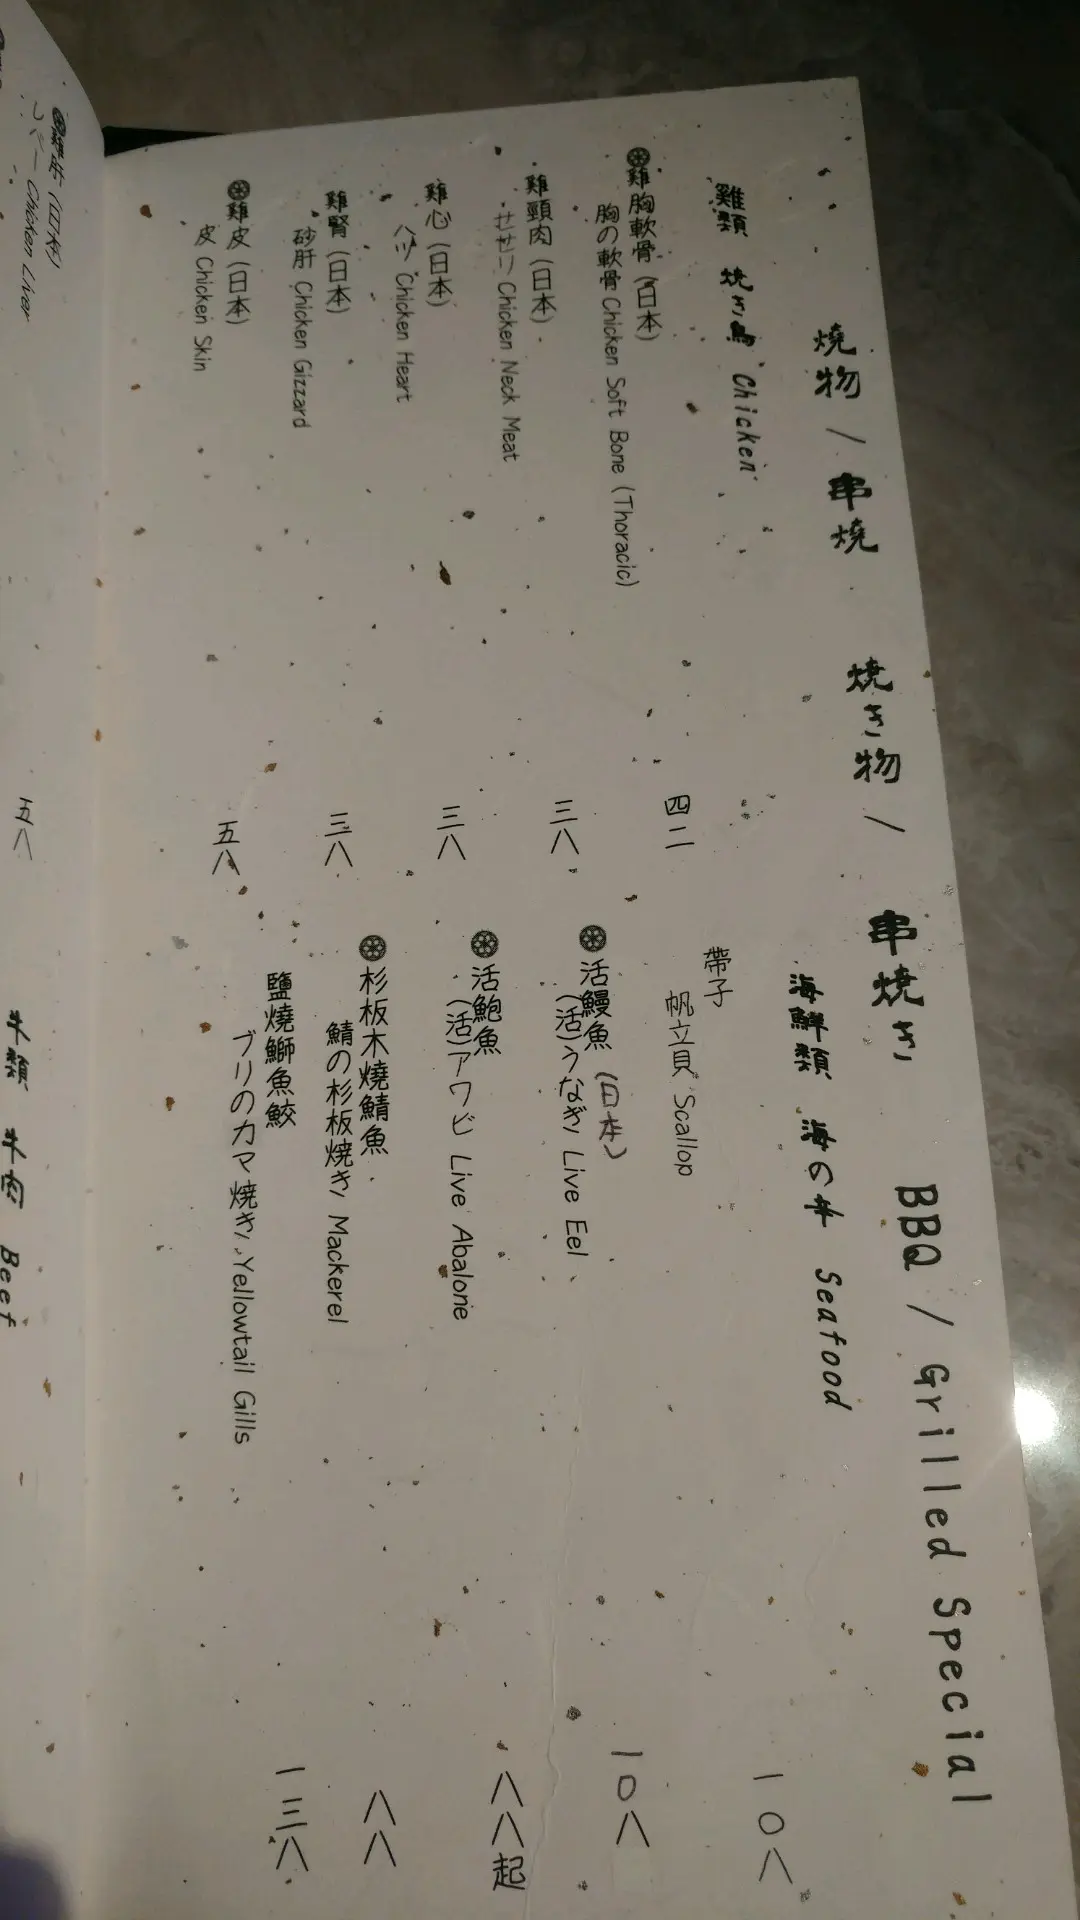 燒物 / 串燒 焼き物 / 串焼き BBQ / Grilled Special
雞類 焼き鳥 Chicken
雞胸軟骨 (日本) 四二
胸の軟骨 Chicken Soft Bone (Thoracic)
雞頸肉 (日本) 三八
せせり Chicken Neck Meat
雞心 (日本) 三八
ハツ Chicken Heart
雞腎 (日本) 三八
砂肝 Chicken Gizzard
雞皮 (日本) 五八
皮 Chicken Skin
海鮮類 海の幸 Seafood
帶子 一〇八
帆立貝 Scallop
活鰻魚 (日本) 一〇八
(活)うなぎ Live Eel
活鮑魚 八八起
(活)アワビ Live Abalone
杉板木燒鯖魚 八八
鯖の杉板焼き Mackerel
鹽燒鰤魚鮫 一三八
ブリのカマ焼き Yellowtail Gills
(日本)
Chicken Liver
五八
牛類 牛肉 Beef